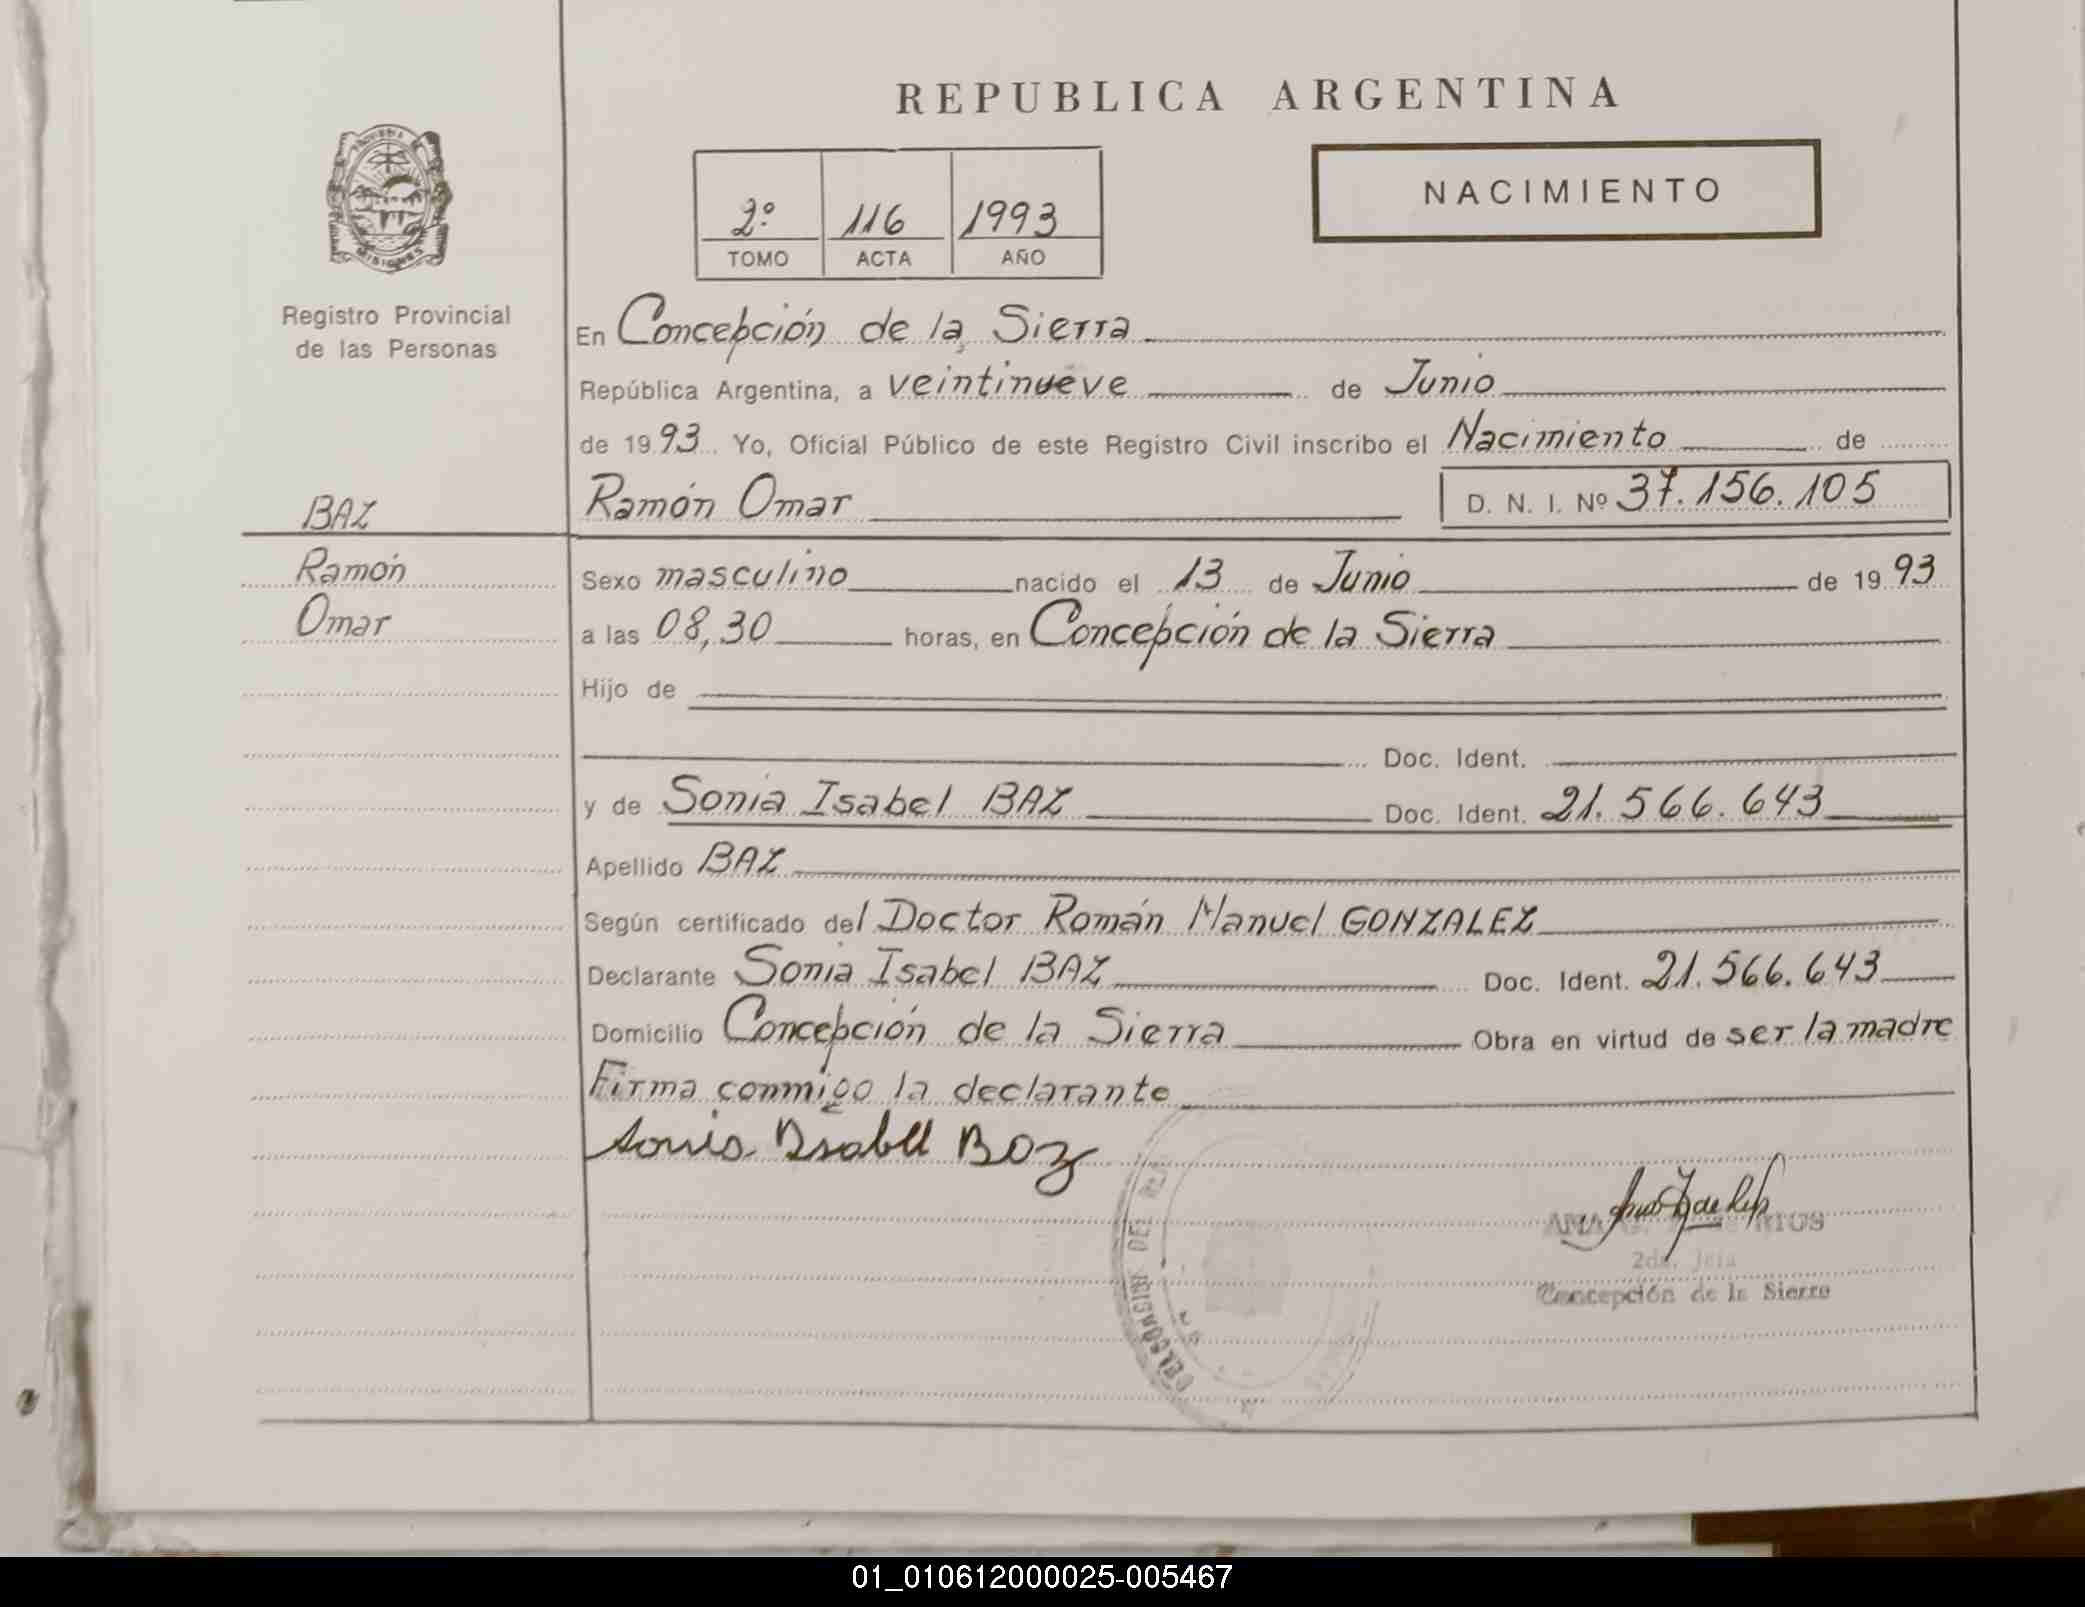 REPUBLICA ARGENTINA
NACIMIENTO
2º 116 1993
TOMO ACTA AÑO
PROVINCIA
MISIONES
Registro Provincial
de las Personas
En Concepción de la Sierra
República Argentina, a veintinueve de Junio
de 1993 Yo, Oficial Público de este Registro Civil inscribo el Nacimiento de
BAZ
Ramón Omar D. N. I. Nº 37.156.105
Ramón
Omar
Sexo masculino nacido el 13 de Junio de 1993
a las 08,30 horas, en Concepción de la Sierra
Hijo de
Doc. Ident.
y de Sonia Isabel BAZ Doc. Ident. 21.566.643
Apellido BAZ
Según certificado del Doctor Román Manuel GONZALEZ
Declarante Sonia Isabel BAZ Doc. Ident. 21.566.643
Domicilio Concepción de la Sierra Obra en virtud de ser la madre
Firma conmigo la declarante
Sonia Isabel Baz
ANA RIOS
2da. Jefa
Concepción de la Sierra
DELEGACION DEL
01_010612000025-005467